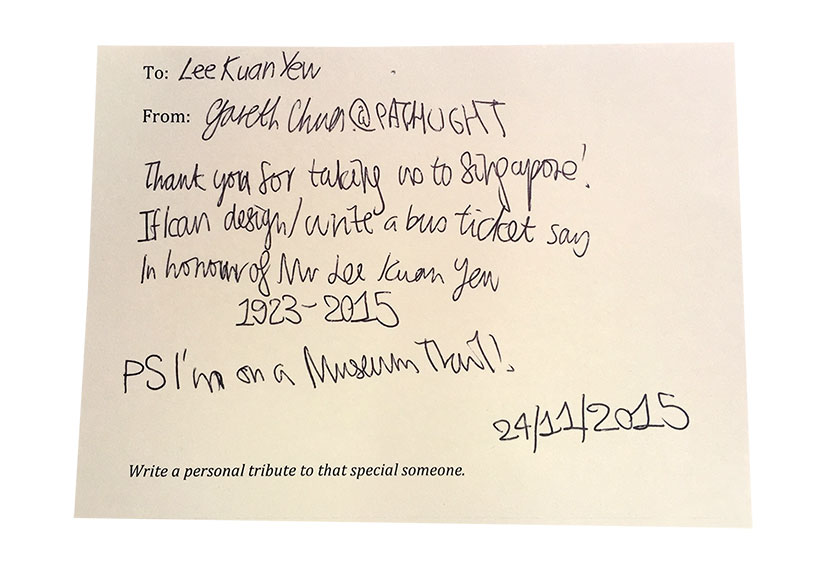 To: Lee Kuan Yew
From: Gareth Chua @PATHLIGHT
Thank you for taking us to Singapore!
If I can design/write a bus ticket say
In honour of Mr Lee Kuan Yew
1923-2015
PS I'm on a Museum Trail!
24/11/2015
Write a personal tribute to that special someone.